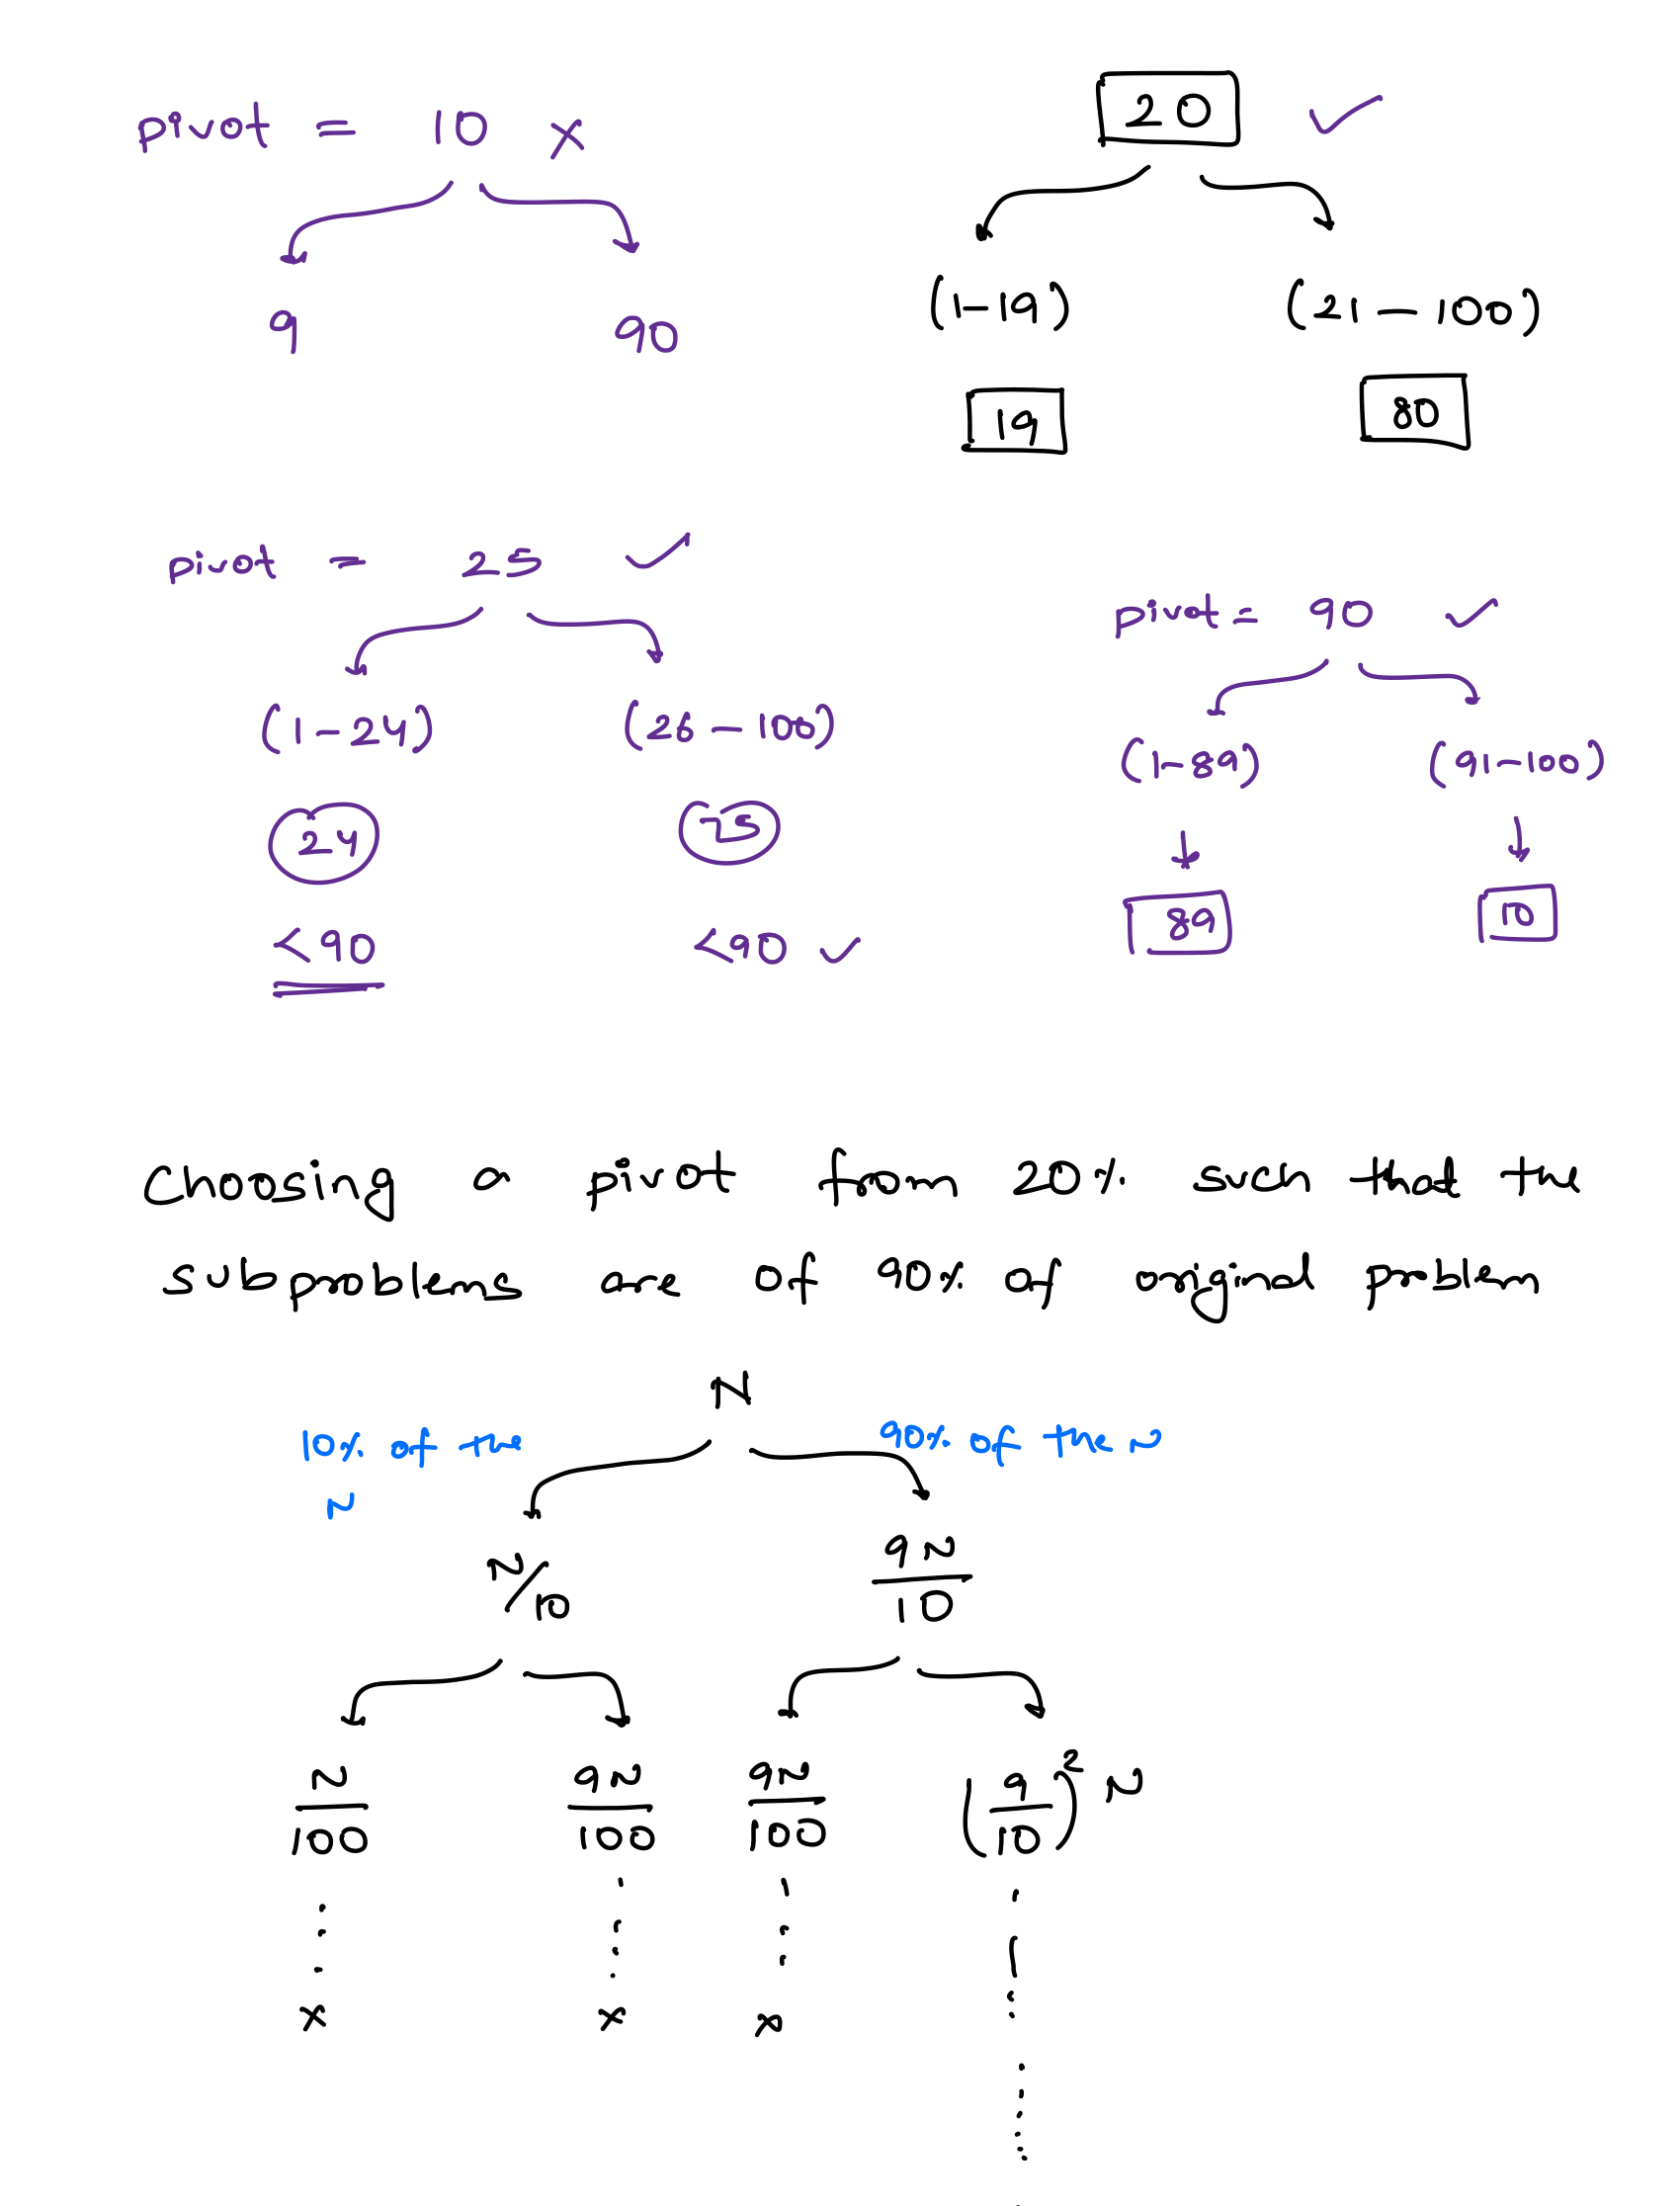 pivot = 10 x
9 90
20 ✓
(1-19) (21-100)
19 80
pivot = 25 ✓
(1-24) (26-100)
24 75
<90 <90 ✓
pivot = 90 ✓
(1-89) (91-100)
89 10
Choosing a pivot from 20% such that the
subproblems are of 90% of original problem
N
10% of the
N
90% of the N
N/10 9N/10
N/100 9N/100 9N/100 (9/10)² N
x x x